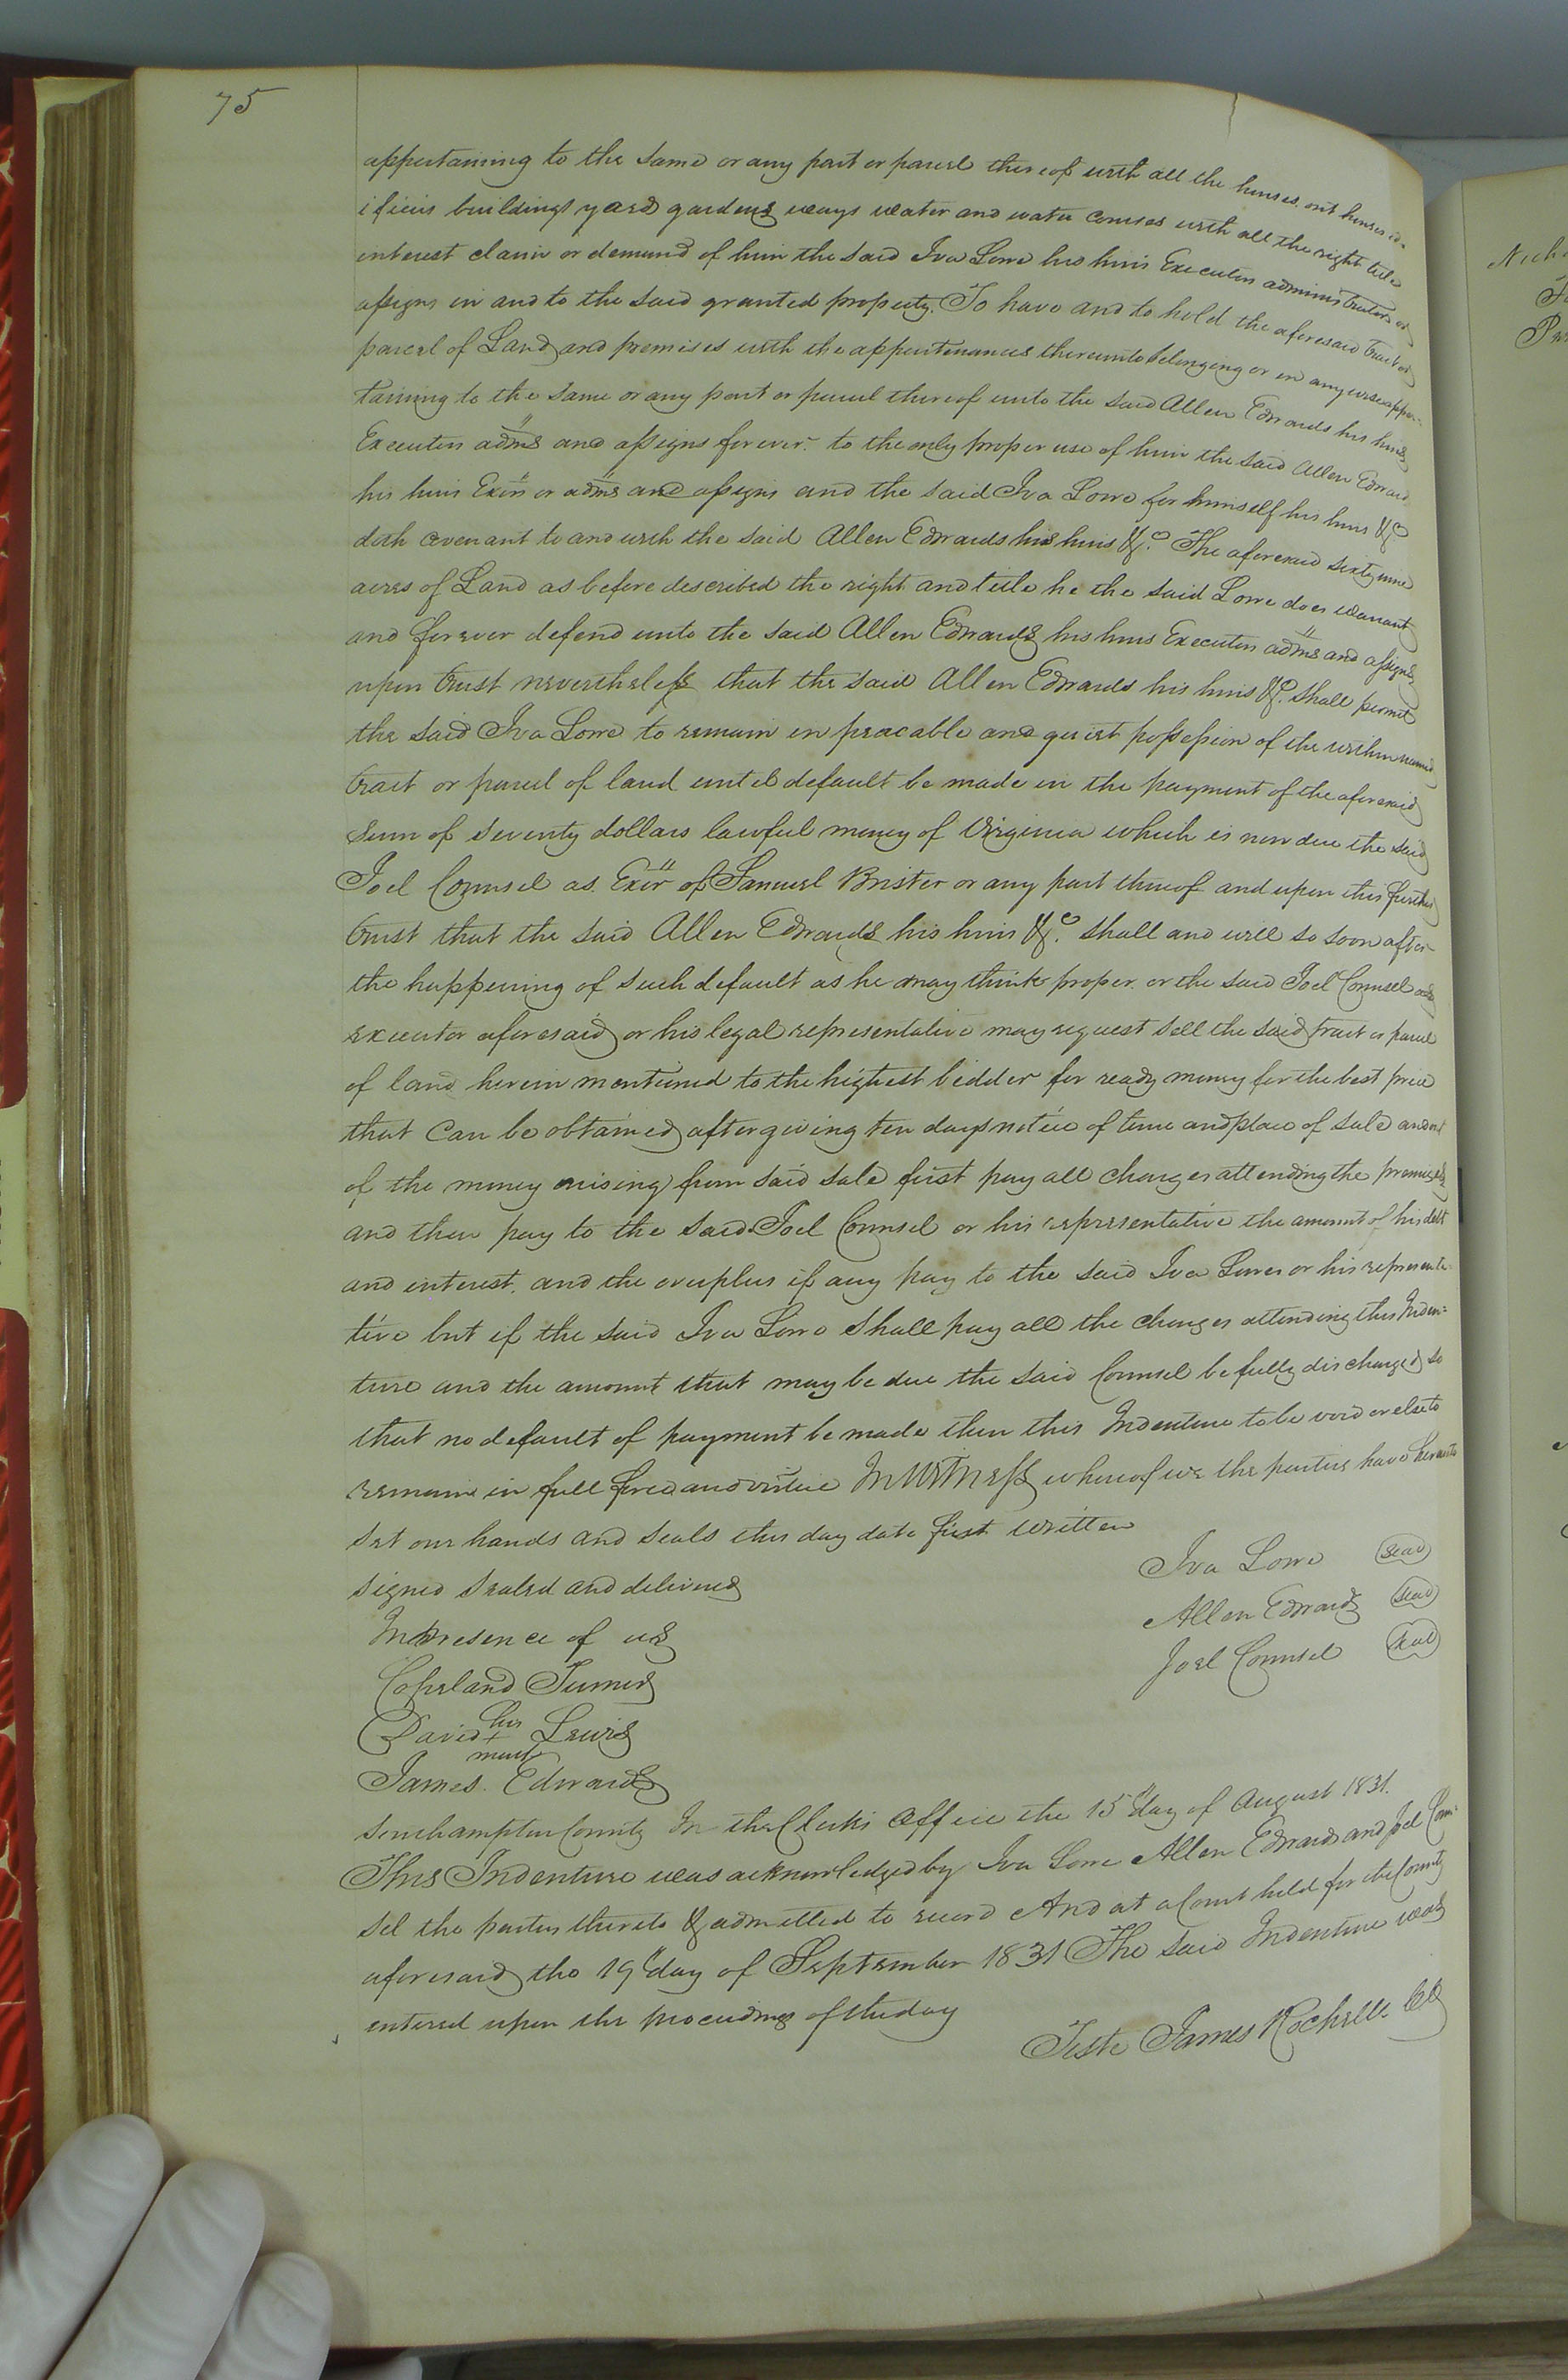 75
appertaining to the same or any part or parcel thereof with all the houses out houses ed-
ifices buildings yard gardens ways water and water courses with all the right title
interest claim or demand of him the said Iva Lowe his heirs Executors administrators or
assigns in and to the said granted property. To have and to hold the aforesaid tract or
parcel of Land and premises with the appurtenances thereunto belonging or in any wise apper-
taining to the same or any part or parcel thereof unto the said Allen Edwards his heirs
Executors adms and assigns forever to the only proper use of him the said Allen Edwards
his heirs Exors or adms and assigns and the said Iva Lowe for himself his heirs &c
doth covenant to and with the said Allen Edwards his heirs &c. The aforesaid sixty nine
acres of Land as before described the right and title he the said Lowe does warrant
and forever defend unto the said Allen Edwards his heirs Executors adms and assigns
upon trust nevertheless that the said Allen Edwards his heirs &c. shall permit
the said Iva Lowe to remain in peacable and quiet possession of the within named
tract or parcel of land until default be made in the payment of the aforesaid
sum of seventy dollars lawful money of Virginia which is now due the said
Joel Counsel as Exor of Samuel Brister or any part thereof and upon this further
trust that the said Allen Edwards his heirs &c. shall and will so soon after
the happening of such default as he may think proper or the said Joel Counsel as
executor aforesaid or his legal representative may request sell the said tract or parcel
of land herein mentioned to the highest bidder for ready money for the best price
that can be obtained after giving ten days notice of time and place of sale and out
of the money arising from said sale first pay all charges attending the premises
and then pay to the said Joel Counsel or his representative the amount of his debt
and interest. and the overplus if any pay to the said Iva Lowe or his representa-
tive but if the said Iva Lowe shall pay all the charges attending this Inden=
ture and the amount that may be due the said Counsel be fully discharged so
that no default of payment be made then this Indenture to be void or else to
remain in full force and virtue In Witness whereof we the parties have hereunto
set our hands and seals this day date first written
Iva Lowe seal
signed sealed and delivered
Allen Edwards seal
In Presence of us
Joel Counsel seal
Copeland Turner
David his + mark Lewis
James Edwards
Southampton County In the Clerks Office the 15" day of August 1831.
This Indenture was acknowledged by Iva Lowe Allen Edwards and Joel Coun-
sel the parties thereto & admitted to record And at a Court held for the County
aforesaid the 19" day of September 1831 The said Indenture was
entered upon the proceedings of the day
Teste James Rochelle CC